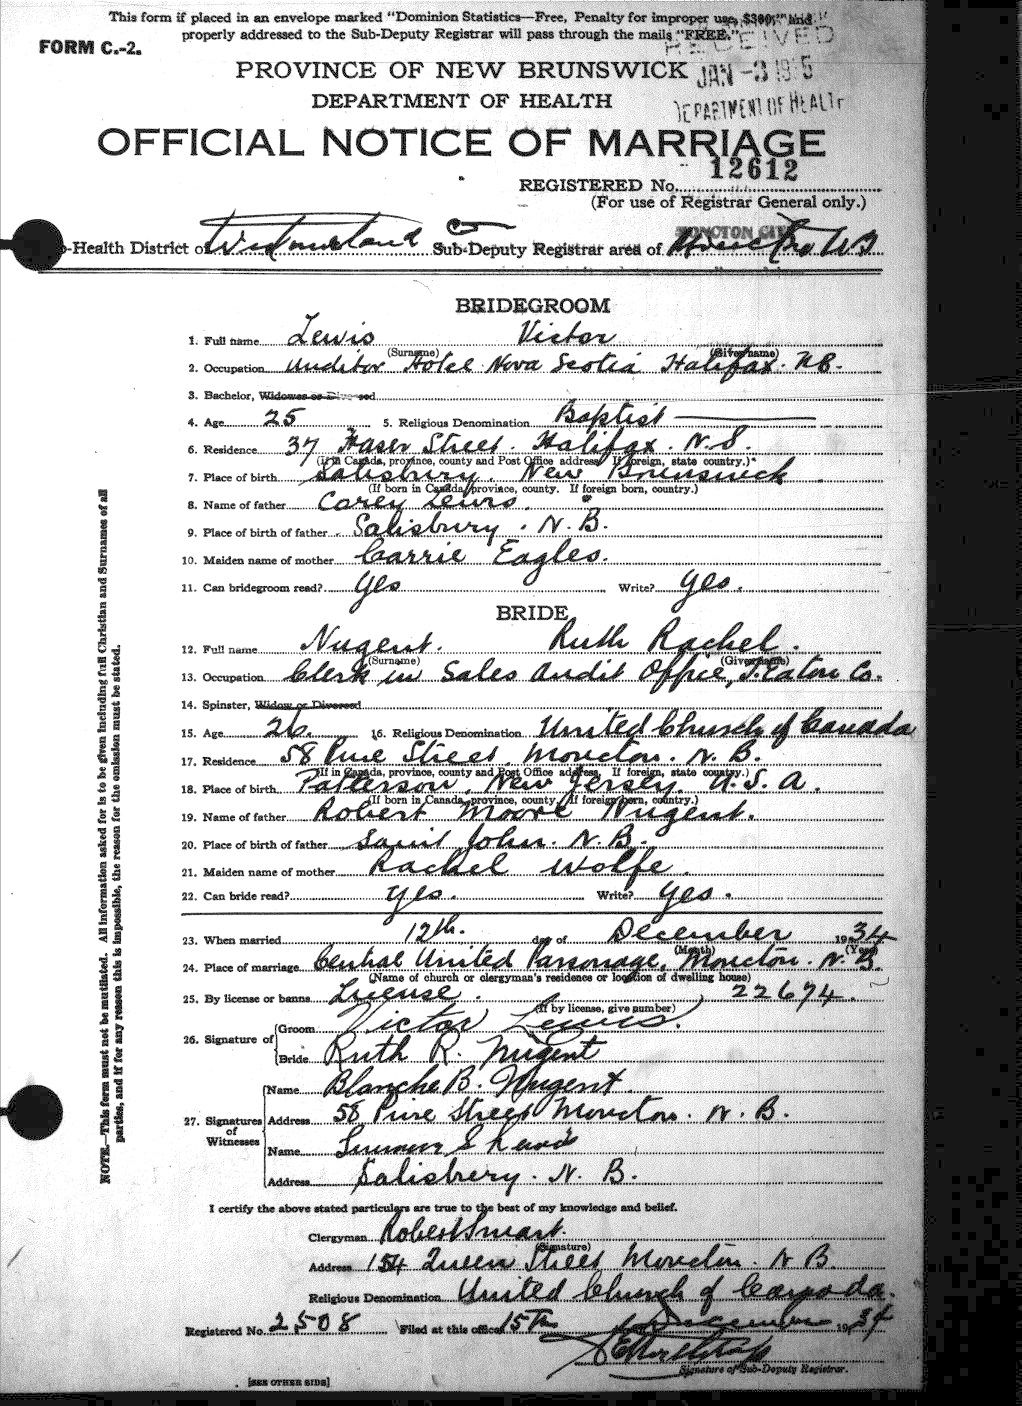 This form if placed in an envelope marked "Dominion Statistics—Free, Penalty for improper use, $300," and
properly addressed to the Sub-Deputy Registrar will pass through the mails "FREE."
FORM C.-2.
RECEIVED
JAN -3 1935
DEPARTMENT OF HEALTH
PROVINCE OF NEW BRUNSWICK
DEPARTMENT OF HEALTH
OFFICIAL NOTICE OF MARRIAGE
12612
REGISTERED No.
(For use of Registrar General only.)
MONCTON CITY
-Health District of Westmorland Sub-Deputy Registrar area of Moncton
BRIDEGROOM
1. Full name Lewis Victor
(Surname) (Given name)
2. Occupation Auditor Hotel Nova Scotia Halifax. N.B.
3. Bachelor, Widower or Divorced
4. Age 25 5. Religious Denomination Baptist
6. Residence 37 Fraser Street. Halifax. N.S.
(If in Canada, province, county and Post Office address. If foreign, state country.)
7. Place of birth Salisbury. New Brunswick
(If born in Canada, province, county. If foreign born, country.)
8. Name of father Carey Lewis.
9. Place of birth of father Salisbury. N.B.
10. Maiden name of mother Carrie Eagles.
11. Can bridegroom read? yes Write? yes.
BRIDE
12. Full name Nugent. Ruth Rachel.
(Surname) (Given name)
13. Occupation Clerk in Sales Audit Office, T. Eaton Co.
14. Spinster, Widow or Divorced
15. Age 26. 16. Religious Denomination United Church of Canada
17. Residence 58 Pine Street, Moncton. N.B.
(If in Canada, province, county and Post Office address. If foreign, state country.)
18. Place of birth Patterson, New Jersey. U.S.A.
(If born in Canada, province, county. If foreign born, country.)
19. Name of father Robert Moore Nugent.
20. Place of birth of father Saint John. N.B.
21. Maiden name of mother Rachel Wolfe
22. Can bride read? yes. Write? yes.
23. When married 12th. day of December 1934
(Month) (Year)
24. Place of marriage Central United Parsonage, Moncton. N.B.
(Name of church or clergyman's residence or location of dwelling house)
25. By license or banns License. 22674.
(If by license, give number)
26. Signature of
Groom Victor Lewis.
Bride Ruth R. Nugent
27. Signatures of Witnesses
Name Blanche B. Nugent
Address 58 Pine Street Moncton. N.B.
Name S Lewis
Address Salisbury. N.B.
I certify the above stated particulars are true to the best of my knowledge and belief.
Clergyman Robert Smart.
(Signature)
Address 154 Queen Street Moncton. N B.
Religious Denomination United Church of Canada.
Registered No. 2508 Filed at this office 15th December 1934
Signature of Sub-Deputy Registrar.
[SEE OTHER SIDE]
NOTE.—This form must not be mutilated. All information asked for is to be given including full Christian and Surnames of all
parties, and if for any reason this is impossible, the reason for the omission must be stated.